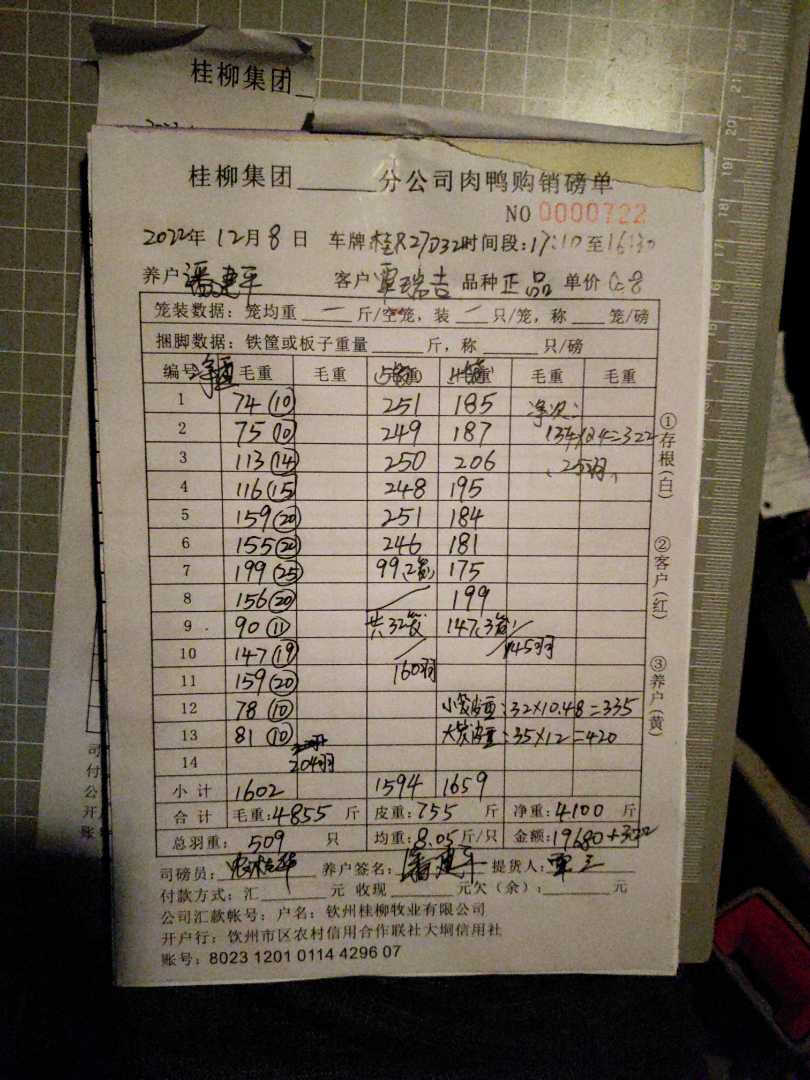 桂柳集团
桂柳集团______分公司肉鸭购销磅单
NO 0000722
2022年 12月 8 日 车牌 桂R27D32 时间段:17:10 至 16:30
养户 潘建平 客户 覃瑞吉 品种 正品 单价
笼装数据：笼均重 一 斤/空笼，装 一 只/笼，称____笼/磅
捆脚数据：铁筐或板子重量______斤，称______只/磅
编号 毛重 毛重 毛重 毛重
1 74 (10) 251 185
2 75 (10) 249 187 134×2.4=322
3 113 (14) 250 206
4 116 (15) 248 195
5 159 (20) 251 184
6 155 (20) 246 181
7 199 (25) 99 175
8 156 (20) 199
9 90 (11) 共32笼 147
10 147 (19) 145羽
11 159 (20) 160羽
12 78 (10) 32×10.48=335
13 81 (10) 35×12=420
14 204羽
小计 1602 1594 1659
合计 毛重:4855 斤 皮重:755 斤 净重:4100 斤
总羽重: 509 只 均重:8.05斤/只 金额:19680+322
司磅员: 养户签名: 潘建平 提货人: 覃三
付款方式：汇______元 收现______元欠（余）:______元
公司汇款帐号：户名：钦州桂柳牧业有限公司
开户行：钦州市区农村信用合作联社大垌信用社
账号：8023 1201 0114 4296 07
①存根(白)
②客户(红)
③养户(黄)